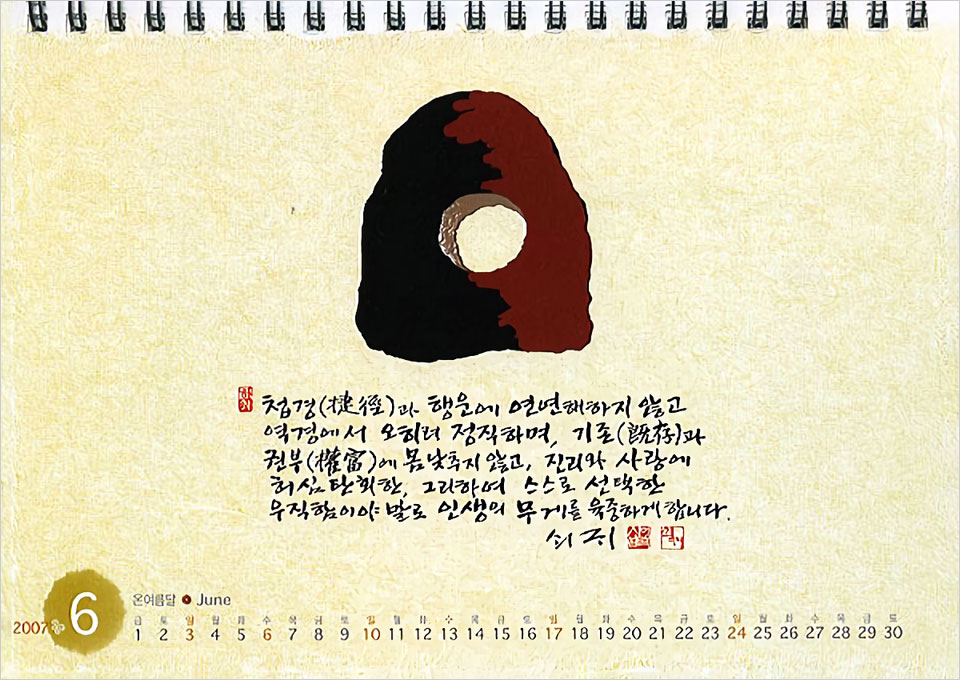 첩경(捷徑)과 행운에 연연해하지 않고
역경에서 오히려 정직하며, 기존(旣存)과
권부(權富)에 몸낮추지 않고, 진리와 사랑에
허심탄회한, 그리하여 스스로 선택한
우직함이야 말로 인생의 무게를 육중하게 합니다.
쇠귀
2007 6
온여름달 June
금 토 일 월 화 수 목 금 토 일 월 화 수 목 금 토 일 월 화 수 목 금 토 일 월 화 수 목 금 토
1 2 3 4 5 6 7 8 9 10 11 12 13 14 15 16 17 18 19 20 21 22 23 24 25 26 27 28 29 30